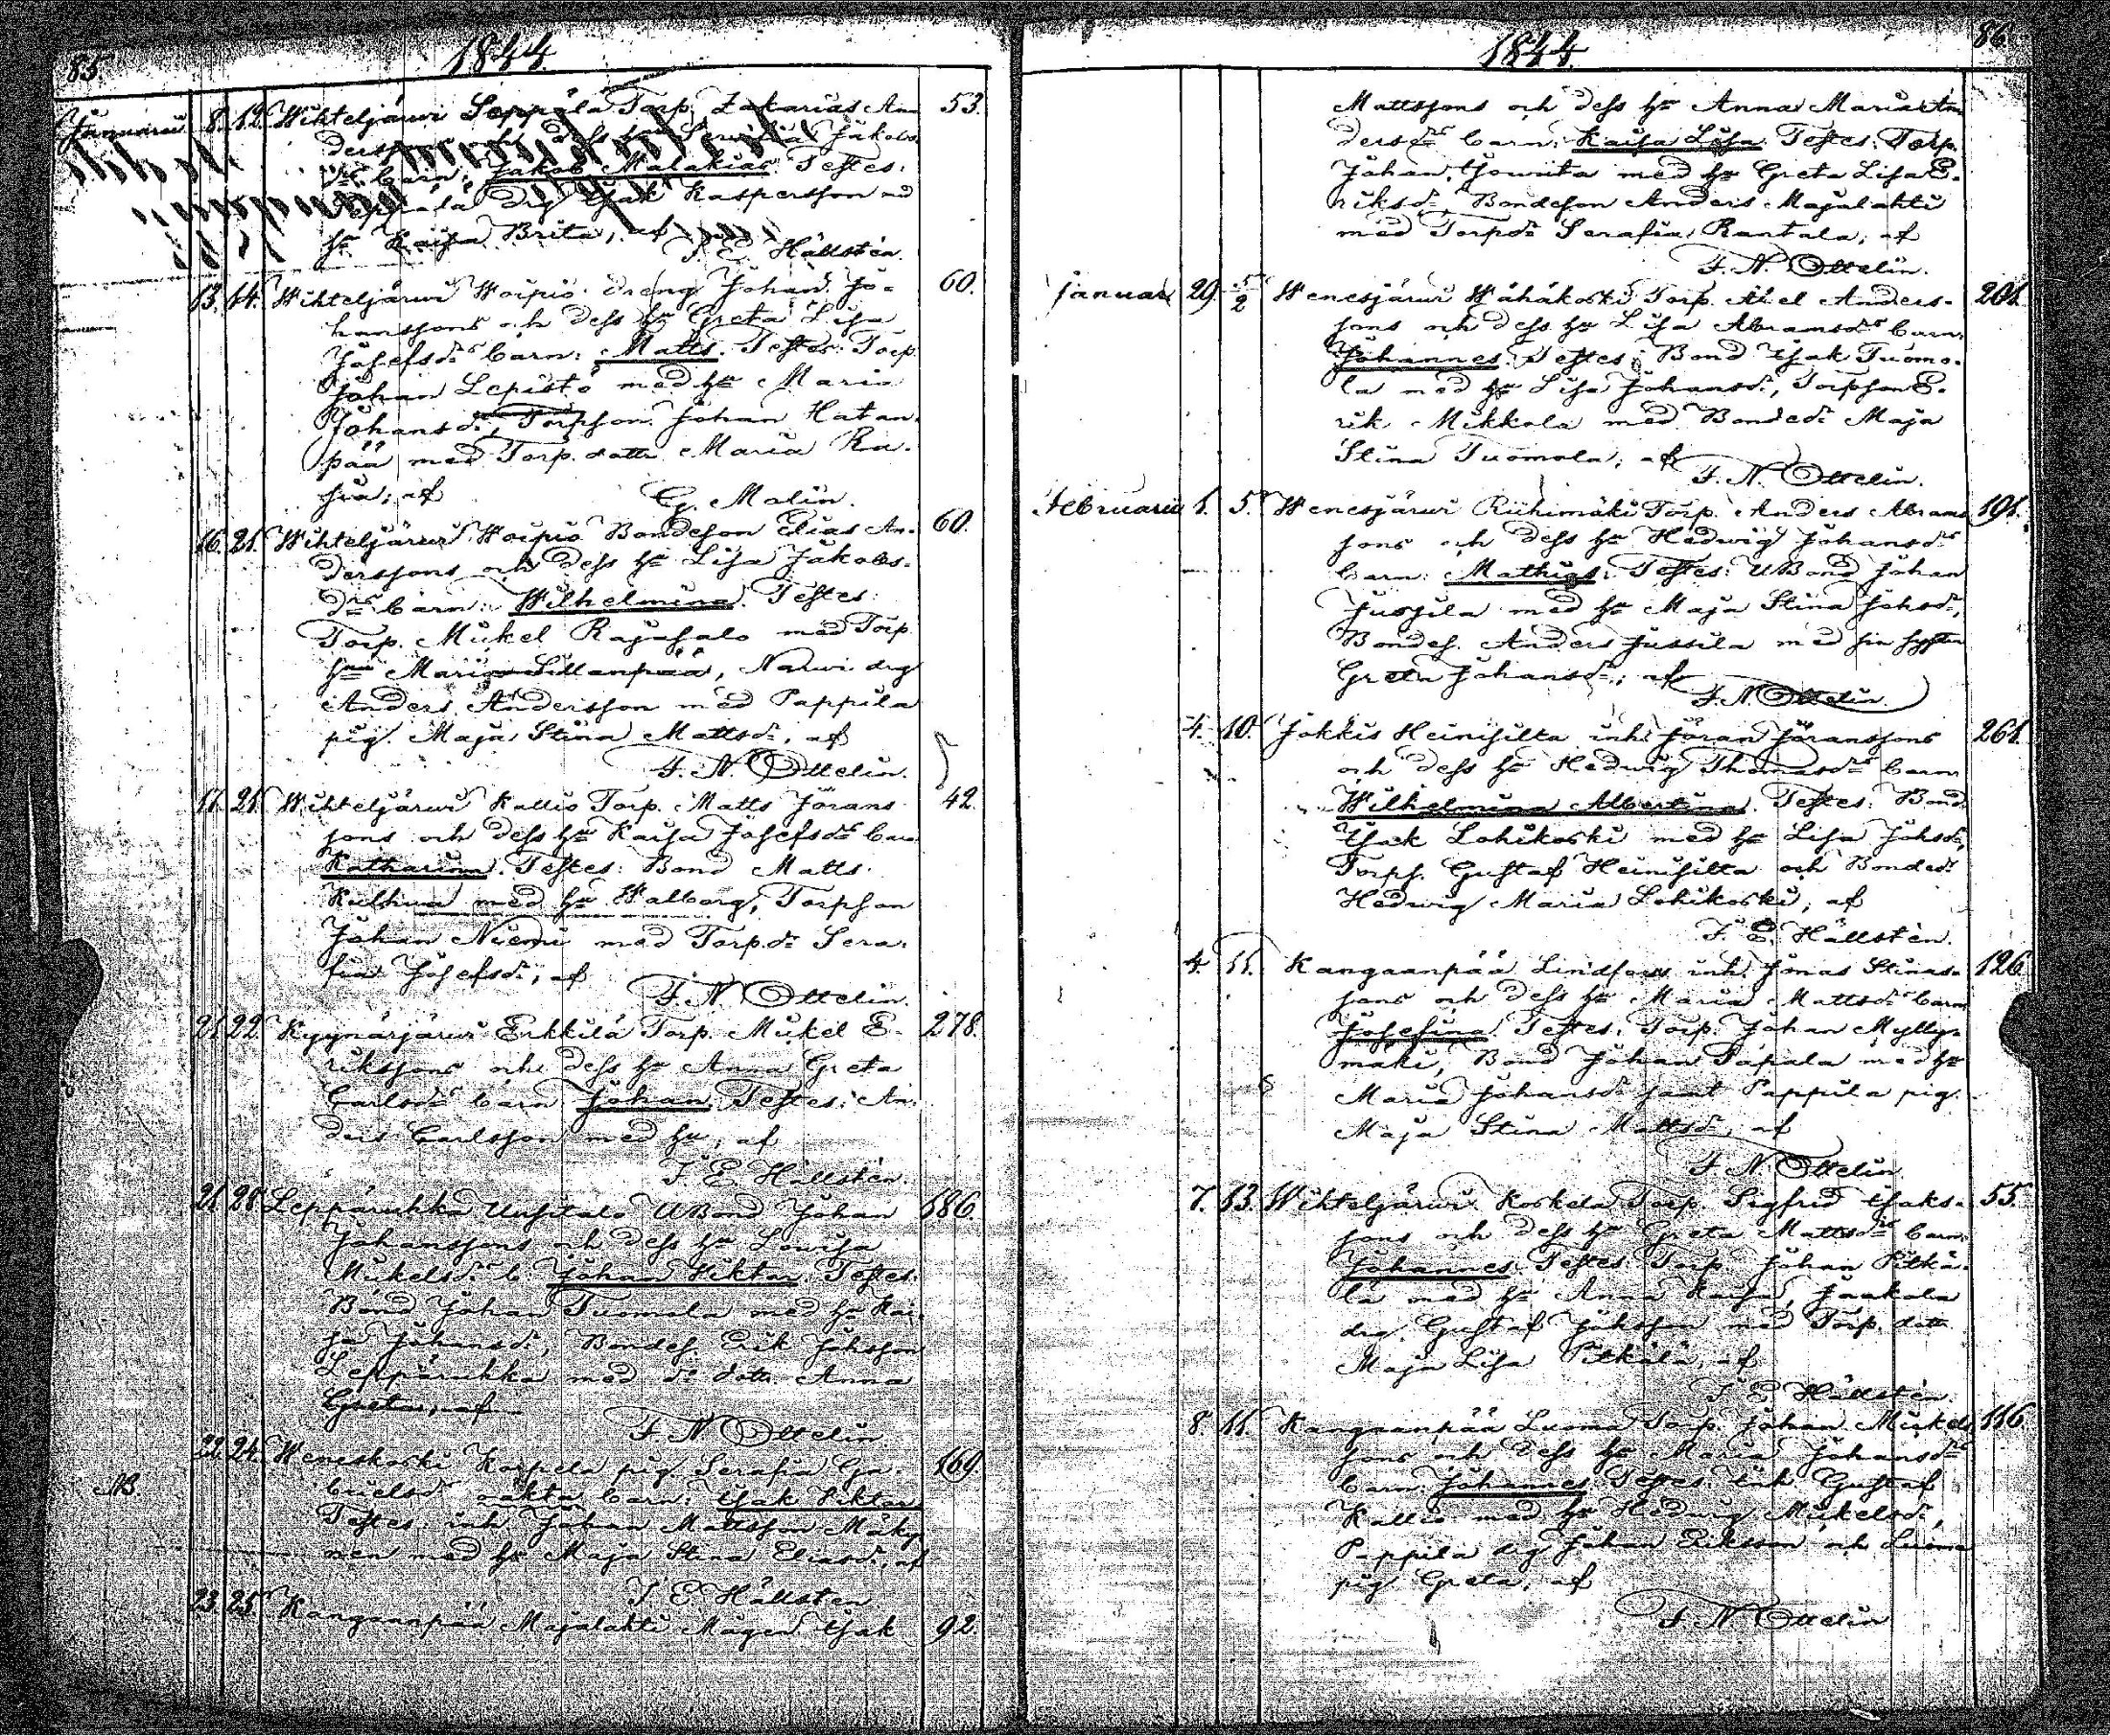 85.
1844
Januarii 8. 12. Wihteljärwi Seppälä Torp. Zakarias An- 53.
ders dess hu Jakobs
dr barn: Jakob Malakias. Testes:
drg Isak Kaspersson med
hu Kaisa Brita, af
F. E. Hällstén.
13. 14. Wihteljärwi Woipio dreng Johan Jo- 60.
hanssons och dess hu Greta Lisa
Josefsdrs barn: Matts. Testes: Torp.
Johan Lepistö med hu Maria
Johansdr, Torpson Johan Hatan-
pää med Torp. dottr Maria Ra-
; af G. Malin.
16. 21. Wihteljärwi Woipio Bondeson Elias An- 60.
derssons och dess hu Lisa Jakobs-
drs barn: Wilhelmina. Testes:
Torp. Mikel Rajasalo med Torp.
hu Maria Sillanpää, Narwi drg
Anders Andersson med Pappila
pig. Maja Stina Mattsdr, af
F. N. Ottelin.
17. 21. Wihteljärwi Kallio Torp. Matts Jörans- 42.
sons och dess hu Kaisa Josefsdrs barn
Katharina. Testes: Bond Matts
med hu Walborg, Torpson
Johan Niemi med Torp.dr Sera-
fia Josefsdr; af
F. N. Ottelin.
21. 22. Kyynärjärwi Erkkilä Torp. Mikel E- 278.
rikssons och dess hu Anna Greta
Carlsdrs barn Johan. Testes: An-
ders Carlsson med hu, af
F. E. Hällstén.
21. 28. Leppäruhka Uusitalo UBond Johan 186.
Johanssons och dess hu Lowisa
Mikelsdrs b. Johan Wiktor. Testes:
Bond Johan Tuomola med hu Kai-
sa Johansdr, Bondes. Erik Johsson
Leppäruhka med dr dottr Anna
Greta, af
F. N. Ottelin
NB. 22. 24. Weneskoski Korpela pig. Serafia Ga- 169.
brielsdrs oäkta barn: Isak Wiktor.
Testes: inh Johan Mattsson Mäky-
nen med hu Maja Stina Eliasdr, af
F. E. Hällstén
23. 25. Kangaanpää Majalahti Mågen Isak 92.
86.
1844.
Mattssons och dess hu Anna Maria An-
dersdrs barn: Kaisa Lisa. Testes: Torp.
Johan med hu Greta Lisa E-
riksdr, Bondeson Anders Majalahti
med Torpdr Serafia Rantala; af
F. N. Ottelin.
Januari 29. 5/2 Wenesjärwi Wähäkoski Torp. Axel Anders- 201.
sons och dess hu Lisa Abramsdrs barn:
Johannes. Testes: Bond Isak Tuomo-
la med hu Lisa Johansdr, Torpson E-
rik Mikkola med Bondedr Maja
Stina Tuomola; af
F. N. Ottelin.
Februarii 1. 5. Wenesjärwi Riihimäki Torp. Anders Abrams- 191.
sons och dess hu Hedwig Johansdrs
barn: Mathias. Testes: UBond Johan
Jussila med hu Maja Stina Johsdr,
Bondes. Anders Jussila med sin syster
Greta Johansdr; af
F. N. Ottelin.
4. 10. Jokkis Heinisilta inh. Jöran Jöranssons 261.
och dess hu Hedwig Thomasdrs barn
Wilhelmina Albertina. Testes: Bond
Isak Lohikoski med hu Lisa Johsdr,
Torps. Gustaf Heinisilta och Bondedr
Hedwig Maria Lohikoski; af
F. E. Hällstén.
4. 11. Kangaanpää Lindfors inh. Jonas Stinas- 126.
sons och dess hu Maria Mattsdrs barn
Josefina. Testes: Torp. Johan Mylly-
mäki, Bond Johan Papala med hu
Maria Johansdr samt Pappila pig.
Maja Stina Mattsdr; af
F. N. Ottelin
7. 13. Wihteljärwi Koskela Torp. Sigfrid Isaks- 55.
sons och dess hu Greta Mattsdrs barn:
Johannes. Testes Torp Johan Pitkä-
lä med hu Anna Kaisa, Jaakola
drg. Gustaf Johsson med Torp. dottr
Maja Lisa Pitkälä, af
F. E. Hällstén
8. 11. Kangaanpää Luoma Torp. Johan Mickels- 116.
sons och dess hu Maria Johansdrs
barn: Johannes. Testes: inh Gustaf
Kallio med hu Hedwig Mikelsdr,
Pappila drg Johan Eriksson och Luoma
pig. Greta, af
F. N. Ottelin